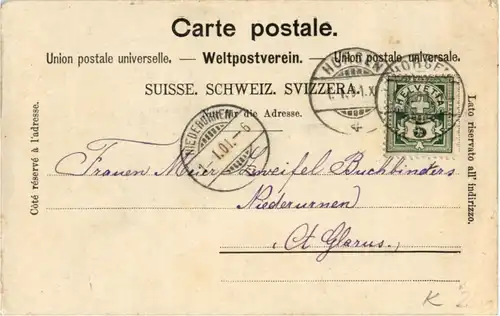 Carte postale.
Union postale universelle. — Weltpostverein. — Unione postale universale.
SUISSE. SCHWEIZ. SVIZZERA.
für die Adresse.
Côté réservé à l'adresse.
Lato riservato all' indirizzo.
HORGEN
HORGEN
HELVETIA
5
NIEDERURNEN
1.01.-6
Frauen Meier-Zweifel Buchbinders
Niederurnen
Ct Glarus.
K 2